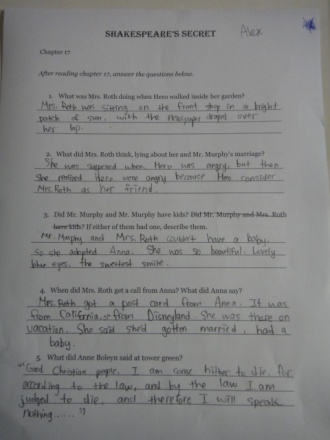 SHAKESPEARE'S SECRET
Alex
Chapter 17
After reading chapter 17, answer the questions below.
1. What was Mrs. Roth doing when Hero walked inside her garden?
Mrs. Roth was sitting on the front step in a bright
patch of sun, with the newspaper draped over
her lap.
2. What did Mrs. Roth think, lying about her and Mr. Murphy's marriage?
She was surprised when Hero was angry, but then
She realized Hero were angry because Hero consider
Mrs. Roth as her friend.
3. Did Mr. Murphy and Mr. Murphy have kids? Did Mr. Murphy and Mrs. Roth
have kids? If either of them had one, describe them.
Mr. Murphy and Mrs. Roth couldn't have a baby.
So she adopted Anna. She was so beautiful. Lovely
blue eyes, the sweetest smile.
4. When did Mrs. Roth get a call from Anna? What did Anna say?
Mrs. Roth got a post card from Anna. It was
from California, or from Disneyland. She was there on
vacation. She said she'd gotten married, had a
baby.
5. What did Anne Boleyn said at tower green?
"Good Christian people, I am come hither to die, for
according to the law, and by the law I am
judged to die, and therefore I will speak
nothing......"